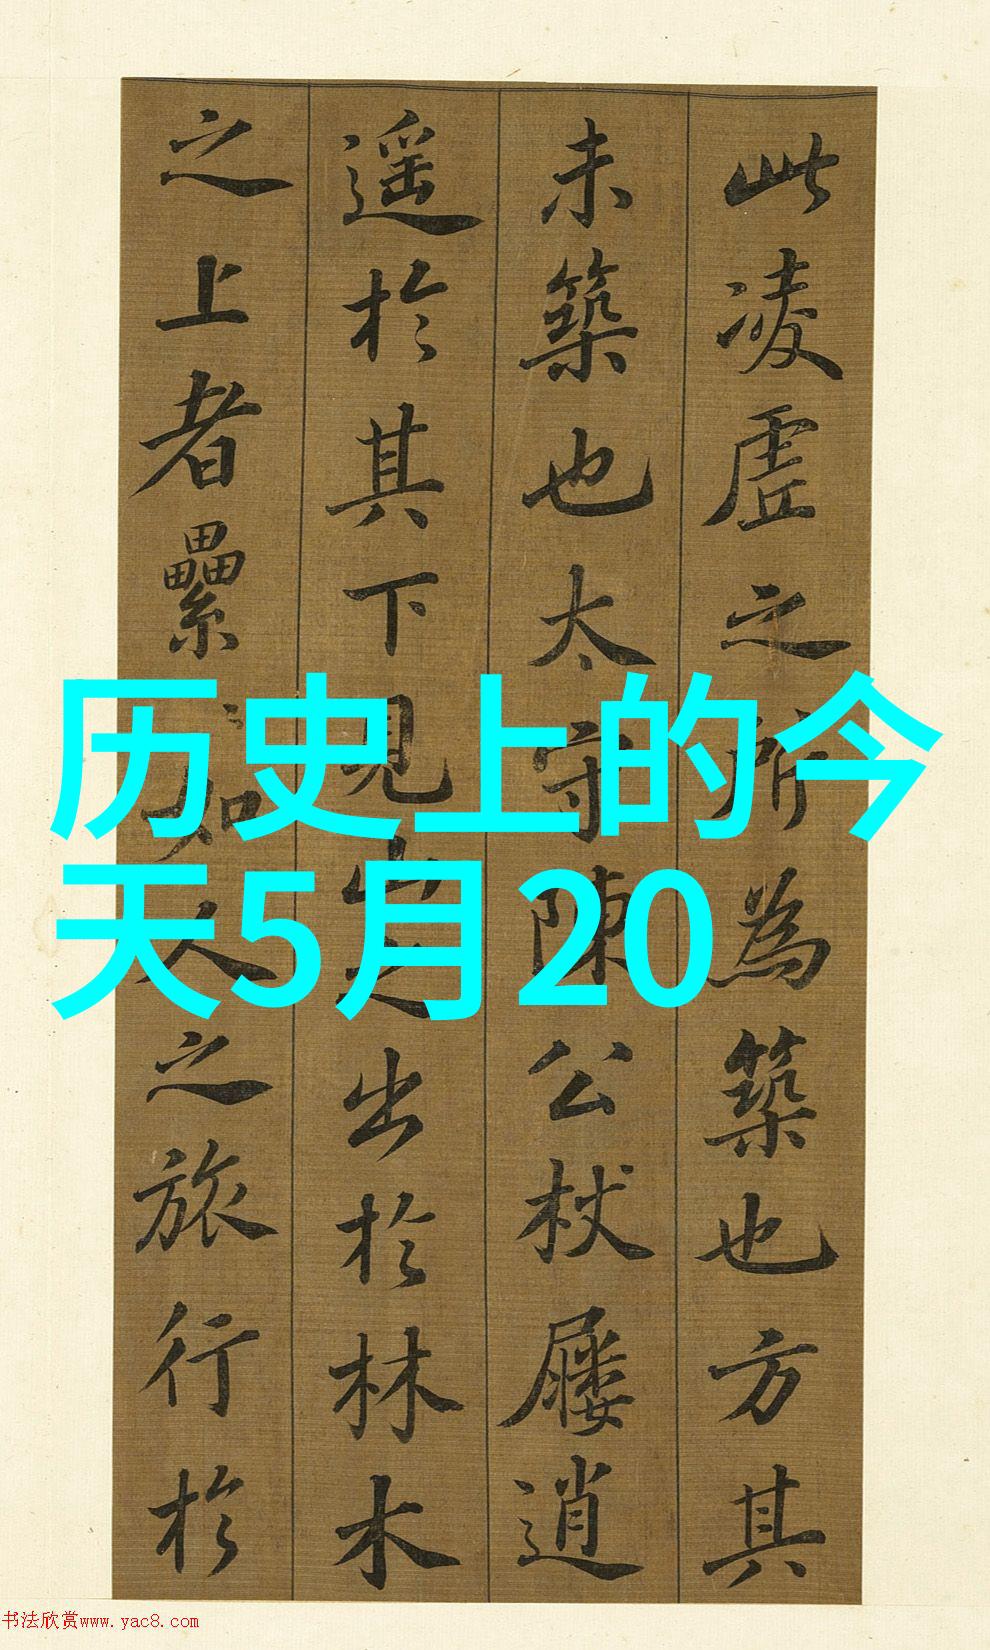 此凌虚之所為築也方其
未築也太守陳公杖屨逍
遥於其下見山之出於林木
之上者纍〻如人之旅行於
历史上的今
天5月20
书法欣赏www.yac8.com